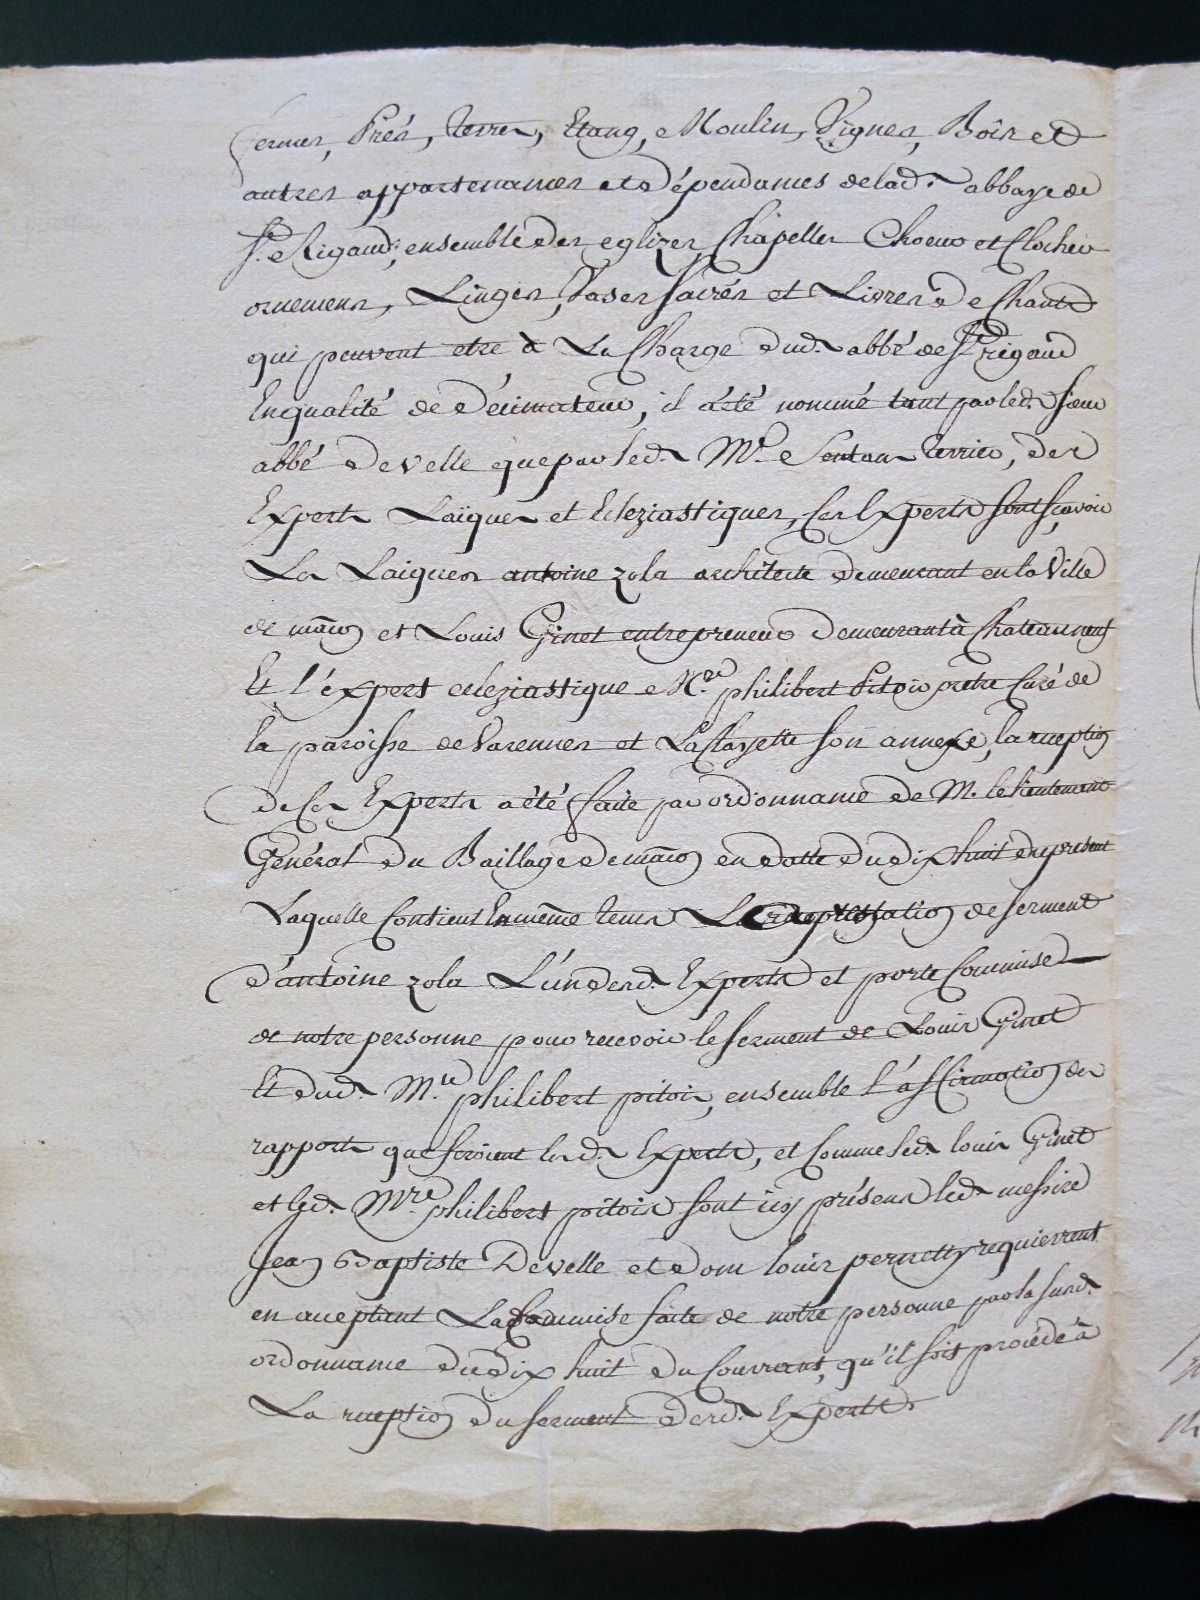 fermes, Prés, terres, Etang, Moulin, Vignes, Bois et
autres appartenances et dépendances delad. abbaye de
St. Rigaud; ensemble des eglizes, Chapelles Choeur et Clocher
ornemens, Linges, Vases sacrés et Livres de Chant
qui peuvent etre à La Charge dud. abbé de St rigaud
En qualité de décimateur, il a été nommé tant par led. sieur
abbé Develle que par led. Mr. terrier, des
Experts Laïques et Ecleziastiques, Ces Experts sont scavoir
Les Laiques antoine zola architecte demeurant en la Ville
de mâcon et Louis Ginet entrepreneur demeurant à Chateauneuf
Et l'expert ecleziastique Mre. philibert Pitois pretre Curé de
la paroisse de Varennes et La Clayette son annexe, la reception
de Ces Experts a été faite par ordonnance de M. le lieutenant
Général du Baillage de mâcon en datte du dix huit du present
Laquelle Contient En même tems La prestation de serment
d'antoine zola L'un desd. Experts et porte Commise
de notre personne pour recevoir le serment de Louis Ginet
Et dud. Mre philibert pitois, ensemble l'affirmation des
rapports que feroient lesd. Experts, et Comme led. louis Ginet
et led. Mre. philibert pitois sont icy présens led. messire
Jean Baptiste Develle et dom louis pernetty requierent
en acceptant La Commise faite de notre personne par la susd.
ordonnance du dix huit du Courrant, qu'il soit procédé à
La reception du serment desd. Experts.